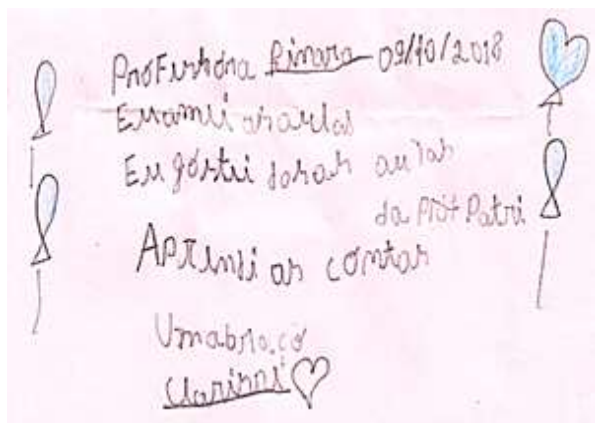 Professora Rimara 09/10/2018
Eu amei as aulas
Eu gostei das aulas
da Prof Patri
Aprendi as contas
Um abraço
Clarinni